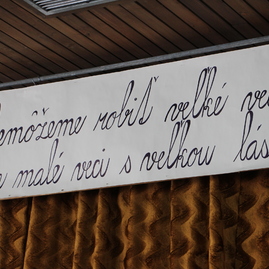 emôžeme robiť veľké ve
e malé veci s veľkou lás